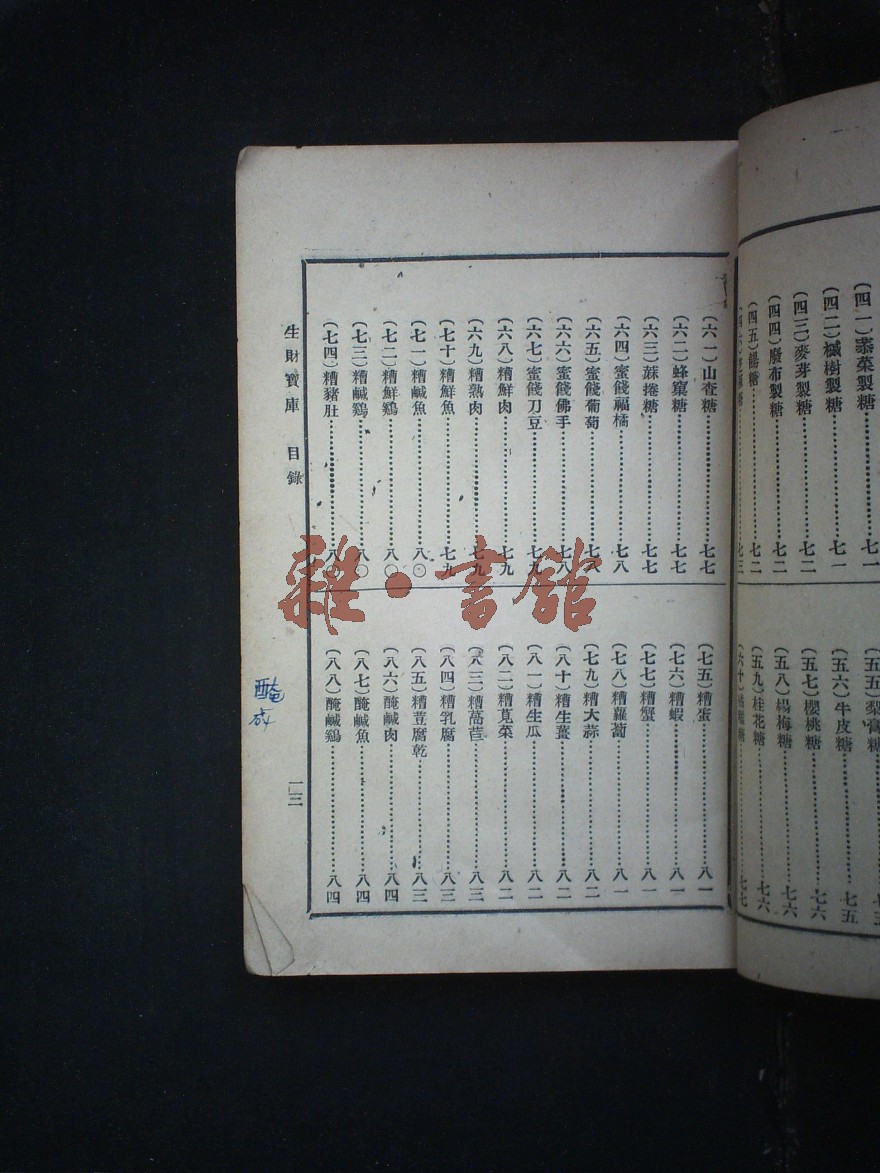 (四一)菾菜製糖……七一
(四二)槭樹製糖……七一
(四三)麥芽製糖……七二
(四四)廢布製糖……七二
(四五)餳糖……七二
糖……七三
(五五)梨膏糖
(五六)牛皮糖……七五
(五七)櫻桃糖……七六
(五八)楊梅糖……七六
(五九)桂花糖……七六
(六十)糖……七七
(六一)山查糖……七七
(六二)蜂窠糖……七七
(六三)蔴捲糖……七七
(六四)蜜餞福橘……七八
(六五)蜜餞葡萄……七八
(六六)蜜餞佛手……七八
(六七)蜜餞刀豆……七九
(六八)糟鮮肉……七九
(六九)糟熟肉……七九
(七十)糟鮮魚……七九
(七一)糟鹹魚……八〇
(七二)糟鮮鷄……八〇
(七三)糟鹹鷄……八〇
(七四)糟豬肚……八〇
(七五)糟蛋……八一
(七六)糟蝦……八一
(七七)糟蟹……八一
(七八)糟蘿蔔……八一
(七九)糟大蒜……八二
(八十)糟生薑……八二
(八一)糟生瓜……八二
(八二)糟莧菜……八二
(八三)糟萵苣……八三
(八四)糟乳腐……八三
(八五)糟荳腐乾……八三
(八六)醃鹹肉……八四
(八七)醃鹹魚……八四
(八八)醃鹹鷄……八四
生財寶庫 目錄
一三
雜·書館
醃